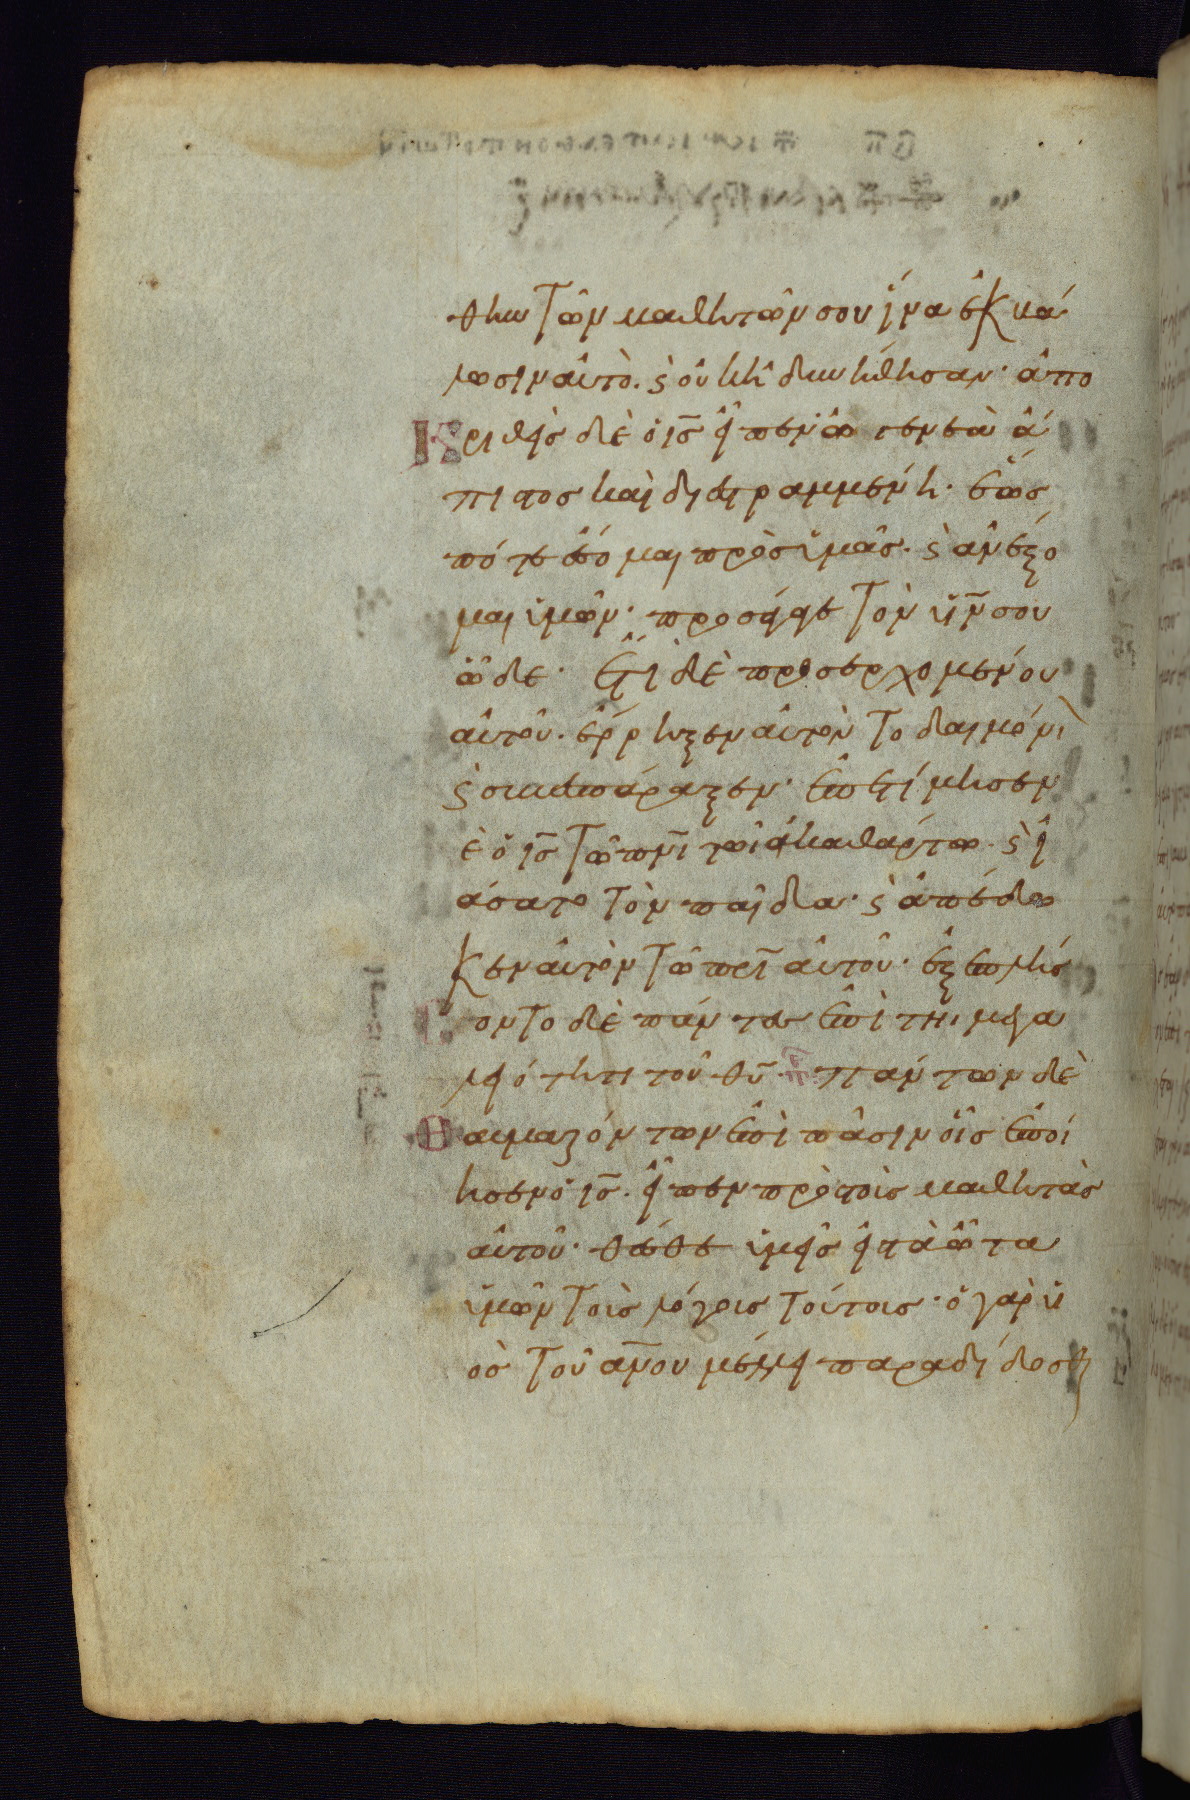 θην τῶν μαθητῶν σου ἵνα ἐκβά
λωσιν αὐτὸ. ϛ οὐκ ἠδυνήθησαν· ἀπο
κριθεὶς δὲ ὁ ις̅ εἶπεν ὦ γενεὰ ἄ
πιστος καὶ διεστραμμένη. ἕως
πότε ἔσομαι πρὸς ὑμᾶς. ϛ ἀνέξο
μαι ὑμῶν· προσάγαγε τὸν υἱν̅ σου
ὧδε· ἔτι δὲ προσερχομένου
αὐτοῦ. ἔρρηξεν αὐτὸν το δαιμόνι
ϛ συνεσπάραξεν· ἐπετίμησεν
δὲ ὁ ις̅ τῶ πνι̅ τῶι ἀκαθάρτω. ϛ ἰ
άσατο τὸν παῖδα· ϛ ἀπέδω
κεν αὐτὸν τῶ πρι̅ αὐτοῦ· ἐξεπλήσ
σοντο δὲ πάντες ἐπὶ τῆι μεγα
λειότητι τοῦ θυ̅. πάντων δὲ
θαυμαζόντων ἐπὶ πᾶσιν οἷς ἐποί
ησεν ὁ ις̅. εἶπεν πρὸς τοὺς μαθητὰς
αὐτοῦ· θέσθε ὑμεῖς εἰς τὰ ὦτα
ὑμῶν τοὺς λόγους τούτους· ὁ γὰρ υἱ
ὸς τοῦ αν̅ου μέλλει παραδίδοσθαι